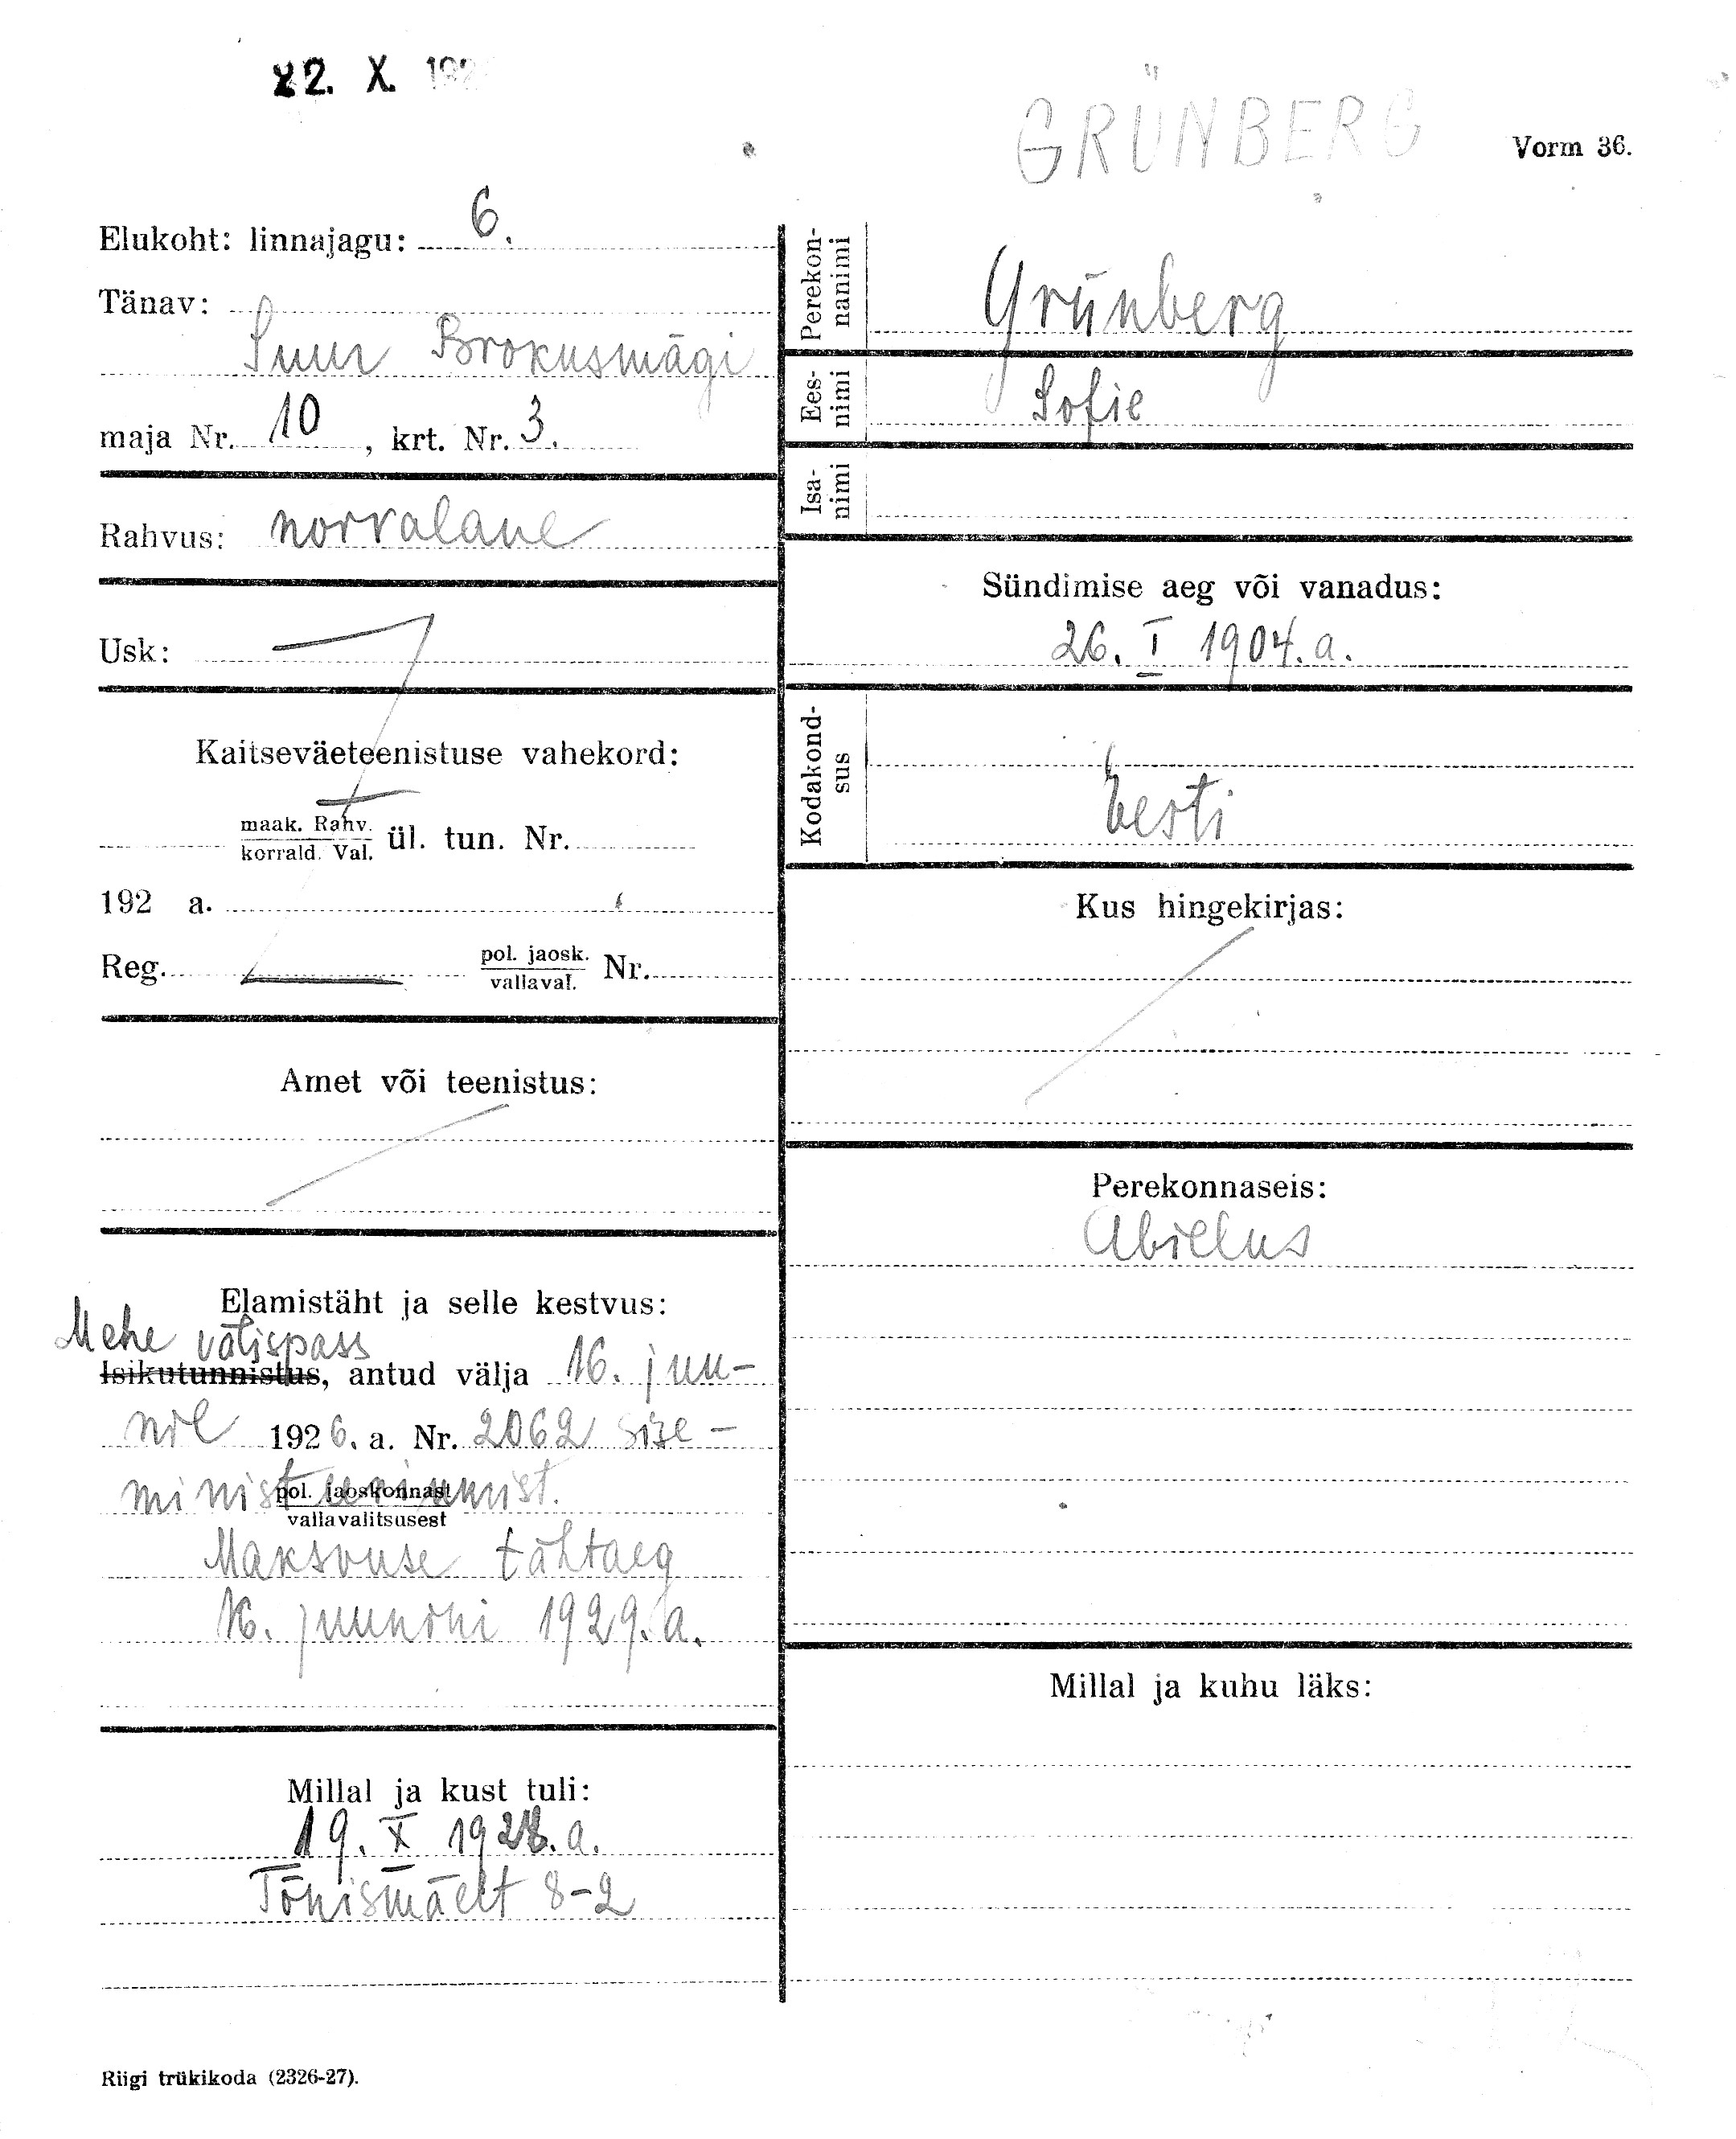 22. X. 192
GRÜNBERG
Vorm 36.
Elukoht: linnajagu: 6.
Tänav:
Suur Brokusmägi
maja Nr. 10, krt. Nr. 3.
Rahvus: norralane
Usk: —
Kaitseväeteenistuse vahekord:
maak. Rahv.
korrald. Val. ül. tun. Nr.
192 a.
Reg. pol. jaosk.
vallaval. Nr.
Amet või teenistus:
Elamistäht ja selle kestvus:
Mehe välispass
Isikutunnistus, antud välja 16. juu-
nil 1926. a. Nr. 2062 sise-
ministeeriumist.
pol. jaoskonnast
vallavalitsusest
Maksvuse tähtaeg
16. juunini 1929. a.
Millal ja kust tuli:
19. X 1928. a.
Tõnismäelt 8-2
Perekon-
nanimi Grünberg
Ees-
nimi Sofie
Isa-
nimi
Sündimise aeg või vanadus:
26. I 1904. a.
Kodakond-
sus Eesti
Kus hingekirjas:
Perekonnaseis:
Abielus
Millal ja kuhu läks:
Riigi trükikoda (2326-27).